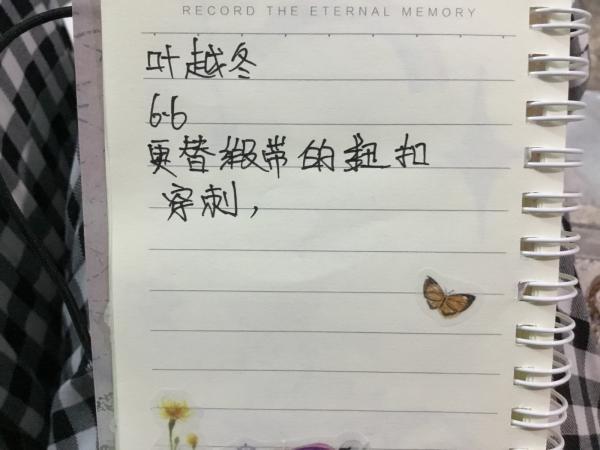 RECORD THE ETERNAL MEMORY
叶越冬
6.6
更替缎带的纽扣
穿刺，